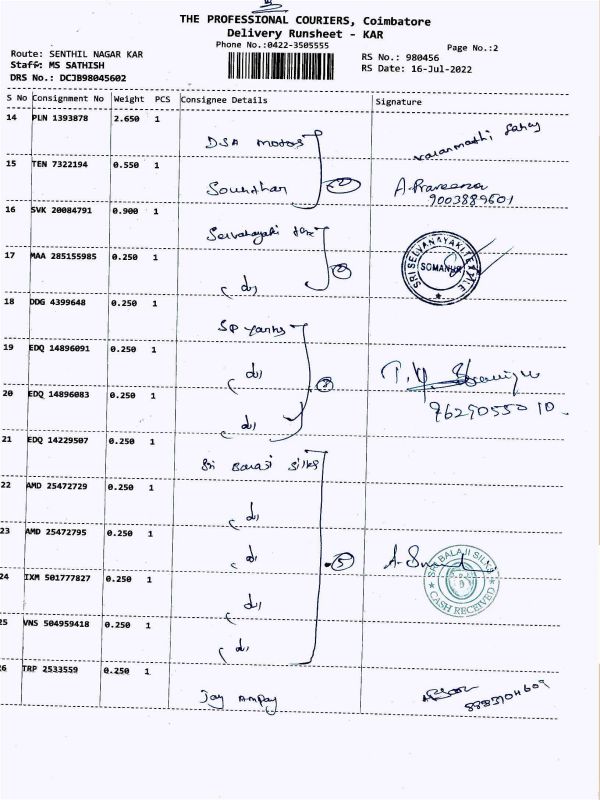 THE PROFESSIONAL COURIERS, Coimbatore
Delivery Runsheet - KAR
Phone No.:0422-3505555
Page No.:2
Route: SENTHIL NAGAR KAR
RS No.: 980456
Staff: MS SATHISH
RS Date: 16-Jul-2022
DRS No.: DCJB98045602
S No Consignment No Weight PCS Consignee Details Signature
14 PLN 1393878 2.650 1
DSA motors
15 TEN 7322194 0.550 1
Soundhar 2 A. Praveena
9003889601
16 SVK 20084791 0.900 1
17 MAA 285155985 0.250 1
2
SRI SELVANAYAKI TEXTILE
SOMANUR
(do)
18 DDG 4399648 0.250 1
SP yarns
19 EDQ 14896091 0.250 1
(do)
20 EDQ 14896083 0.250 1
(do)
21 EDQ 14229507 0.250 1
Sri Balaji Silks
22 AMD 25472729 0.250 1
(do)
23 AMD 25472795 0.250 1
(do) 5
SRI BALAJI SILKS
CASH RECEIVED
24 IXM 501777827 0.250 1
(do)
25 VNS 504959418 0.250 1
(do)
26 TRP 2533559 0.250 1
Jay